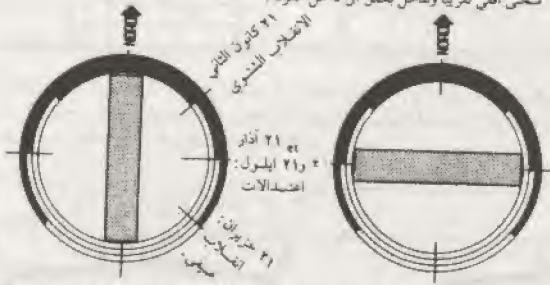 NORD
NORD
٢١ كانون الثاني
الانقلاب الشتوي
٢١ آذار
و٢١ ايلول:
اعتدالات
٢١ حزيران:
انقلاب
صيفي.